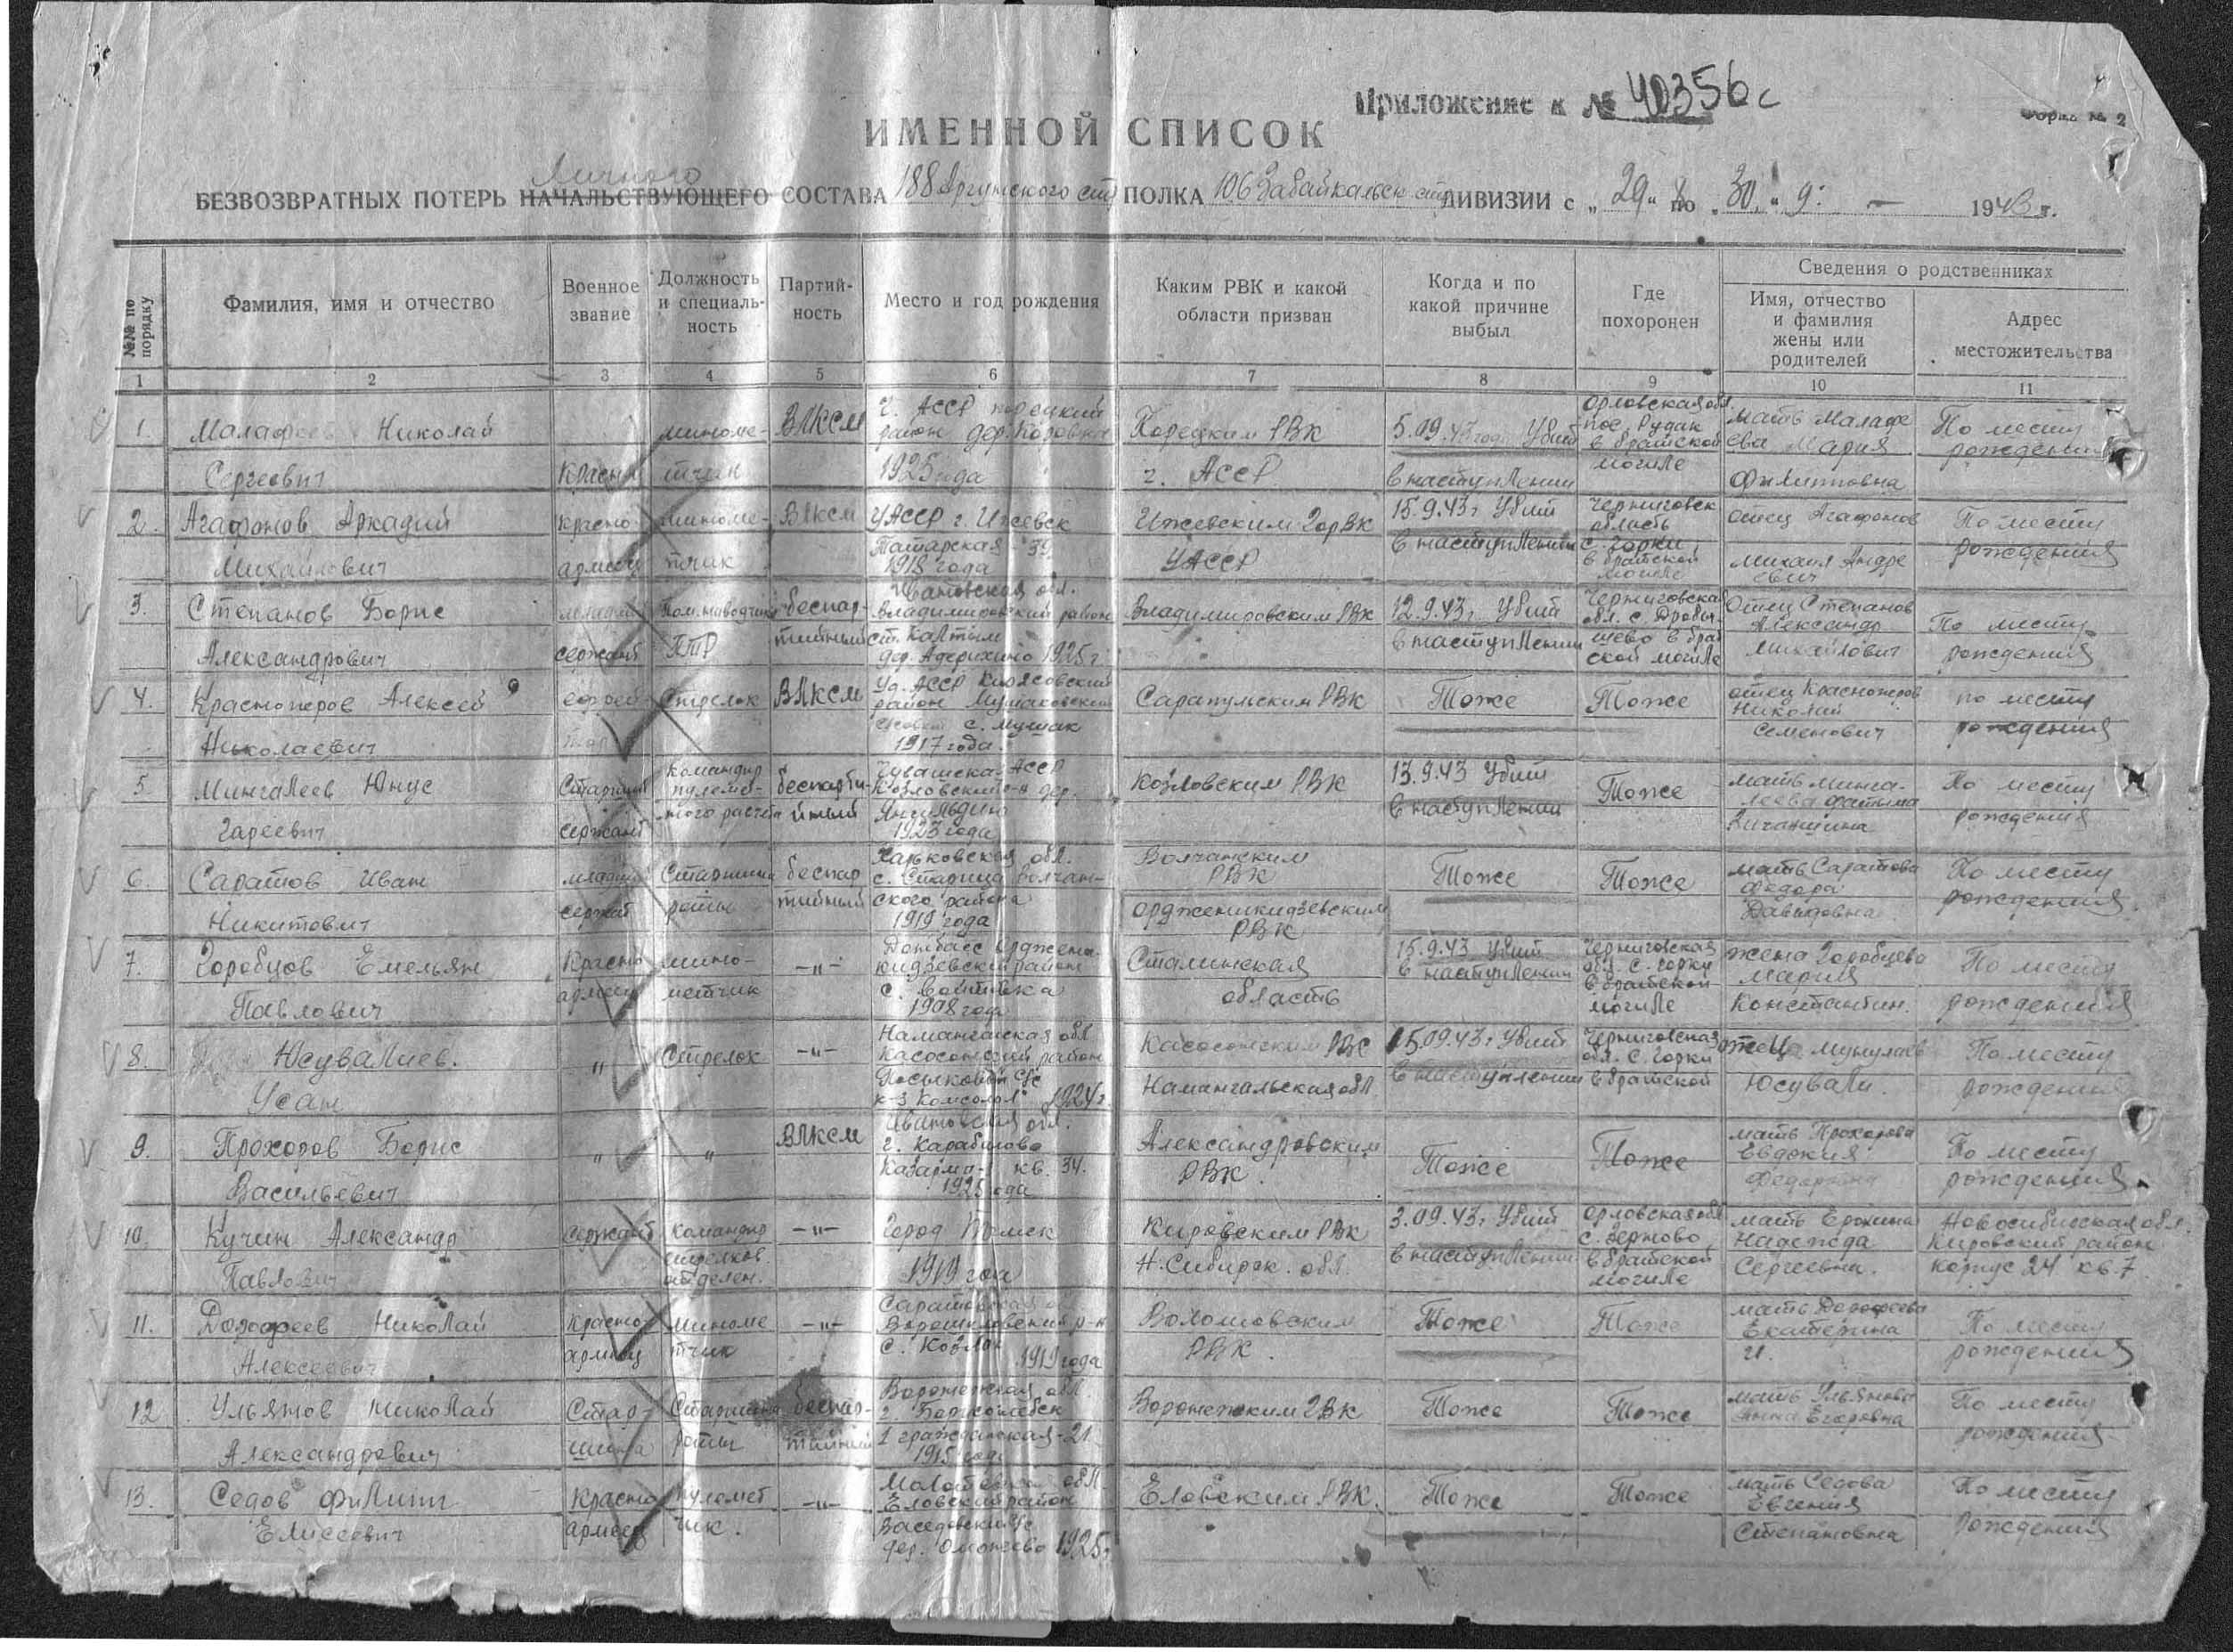 Приложение к № 40356с
Форма № 2
ИМЕННОЙ СПИСОК
Личного
БЕЗВОЗВРАТНЫХ ПОТЕРЬ НАЧАЛЬСТВУЮЩЕГО СОСТАВА 188 Аргунского сп ПОЛКА 106 Забайкальск ДИВИЗИИ с „29" 8 по „30" 9. — 1943 г.
№№ по порядку
Фамилия, имя и отчество
Военное звание
Должность и специаль-ность
Партий-ность
Место и год рождения
Каким РВК и какой области призван
Когда и по какой причине выбыл
Где похоронен
Сведения о родственниках
Имя, отчество и фамилия жены или родителей
Адрес местожительства
1 2 3 4 5 6 7 8 9 10 11
1. Малафеев Николай Сергеевич
Красн миноме-тчик ВЛКСМ
Ч. АССР район дер.
1925 года
Порецким РВК Ч. АССР
5.09.43 года Убит в наступлении
Орловская обл. пос. Рудак в братской могиле
мать Малафеева Мария Филипповна
По месту рождения
2. Агафонов Аркадий Михайлович
Красно-армеец миноме-тчик ВЛКСМ
УАССР г. Ижевск Татарская - 39 1918 года
Ижевским ГорВК УАССР
15.9.43г Убит в наступлении
Черниговск область с. Горки в братской могиле
Отец Агафонов Михаил Андреевич
По месту рождения
3. Степанов Борис Александрович
младший сержант Пом. наводчика ПТР беспар-тийный
Ивановская обл. Владимировский район ст. Колтыш дер. Адерихино 1925 г.
Владимировским РВК
12.9.43г Убит в наступлении
Черниговская обл. с. в братской могиле
Отец Степанов Александр Михайлович
По месту рождения
4. Красноперов Алексей Николаевич
ефрей-тор Стрелок ВЛКСМ
Уд. АССР Киясовский район Мушаковский с. Мушак 1917 года.
Сарапульским РВК
Тоже
Тоже
отец Красноперов Николай Семенович
по месту рождения
5 Мингалеев Юнус Гареевич
Старший сержант Командир пулеме-тного расчета беспарти-йный
Чувашская АССР Козловский р-н дер. Янгильдино 1923 года
Козловским РВК
13.9.43 Убит в наступлении
Тоже
мать Минга-леева Фатыма
По месту рождения
6. Саратов Иван Никитович
младший сержант Старшина роты беспар тийный
Харьковская обл. с. Старица Волчан-ского района 1919 года
Волчанским РВК
Тоже
Тоже
мать Саратова Федора Давыдовна
По месту рождения.
7. Горобцов Емельян Павлович
Красно армеец мино-метчик —„—
Донбасс Орджени-кидзевский район с. 1908 года
Орджени­кидзевским РВК Сталинская область
15.9.43 Убит в наступлении
Черниговская обл. с. Горки в братской могиле
жена Горобцова Мария Константин.
По месту рождения
8. Юсувалиев. Усан
„ Стрелок —„—
Наманганская обл Касосонский район к-з Комсомол 1924 г.
Касосонским РВС Намангальская обл
15.09.43г Убит в наступлении
Черниговская обл. с. Горки в братской
отец Юсували.
По месту рождения
9. Прохоров Борис Васильевич
„ „ ВЛКСМ
Ивановская обл. г. Карабаново Казарма- кв. 34. 1925 года
Александровским РВК.
Тоже
Тоже
мать Прохорова Евдокия
По месту рождения.
10. Кучин Александр Павлович
сержант командир стрелков. отделен. —„—
Город Томск 1919 год
Кировским РВК Н. Сибирск. обл.
3.09.43г Убит в наступлении
Орловская обл с. Зерново в братской могиле
мать Ерохина Надежда Сергеевна.
Новосибирская обл. Кировский район корпус 24 кв. 7
11. Дорофеев Николай Алексеевич
Красно армеец миноме тчик —„—
Саратовская Ворошиловский р-н с. Козлов 1919 года
РВК.
Тоже
Тоже
мать Дорофеева Екатерина И.
По месту рождения
12 Ульянов Николай Александрович
Стар-шина Старшина роты беспар-тийный
Воронежская обл. г. Борисоглебск 1 гражданская - 21 1915 года
Воронежским ГВК
Тоже
Тоже
мать Ульянова Анна Егоровна
По месту рождения
13. Седов Филипп Елисеевич
Красно армеец пулемет чик. —„—
обл. Еловский район дер. 1925г
Еловским РВК.
Тоже
Тоже
мать Седова Евгения Степановна
По месту рождения